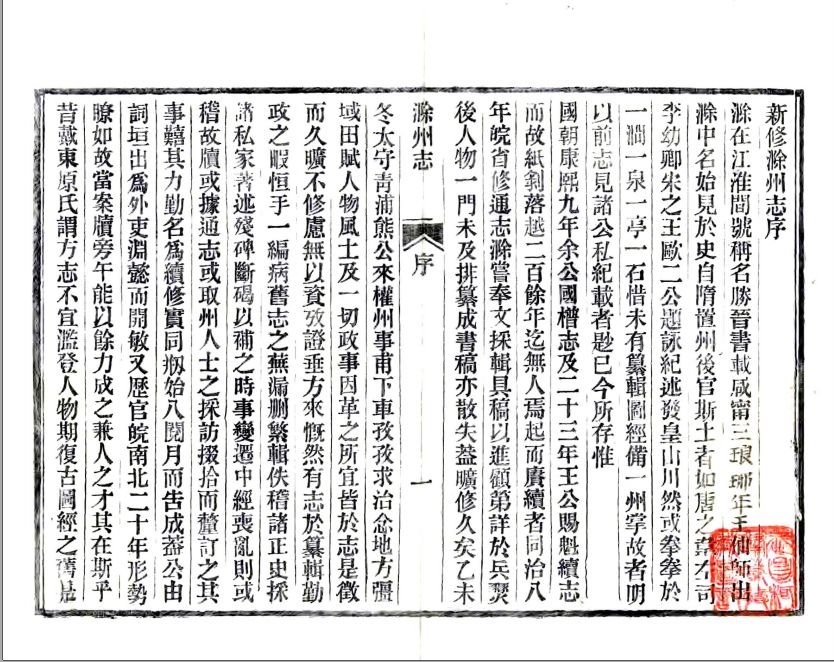 新修滁州志序
滁在江淮間號稱名勝晉書載咸甯三年琅琊王伷師出
滁中名始見於史自隋置州後官斯土者如唐之韋左司
李幼卿宋之王歐二公題詠紀述發皇山川然或拳拳於
一澗一泉一亭一石惜未有纂輯圖經備一州掌故者明
以前志見諸公私紀載者尠已今所存惟
國朝康熙九年余公國㯖志及二十三年王公賜魁續志
而故紙剝落越二百餘年迄無人焉起而賡續者同治八
年皖省修通志滁嘗奉文採輯具稿以進顧第詳於兵燹
後人物一門未及排纂成書稿亦散失葢曠修久矣乙未
滁州志
序
一
冬太守青浦熊公來權州事甫下車孜孜求治念地方疆
域田賦人物風土及一切政事因革之所宜皆於志是徵
而久曠不修慮無以資攷證垂方來慨然有志於纂輯勤
政之暇恒手一編病舊志之蕪漏刪繁輯佚稽諸正史採
諸私家著述殘碑斷碣以補之時事變遷中經喪亂則或
稽故牘或據通志或取州人士之採訪掇拾而釐訂之其
事囏其力勤名爲續修實同刱始八閱月而告成葢公由
詞垣出爲外吏淵懿而開敏又歷官皖南北二十年形勢
瞭如故當案牘旁午能以餘力成之兼人之才其在斯乎
昔戴東原氏謂方志不宜濫登人物期復古圖經之舊是